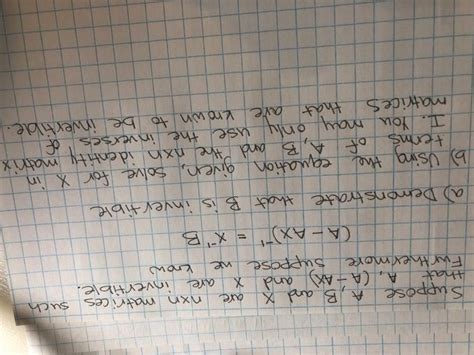 Suppose A, B and X are nxn matrices such
that A, (A-AX) and X are invertible.
Furthermore suppose we know
(A-AX)⁻¹ = X⁻¹B
a) Demonstrate that B is invertible
b) Using the equation given, solve for X in
terms of A, B and the nxn identity matrix
I. You may only use the inverses of
matrices that are known to be invertible.